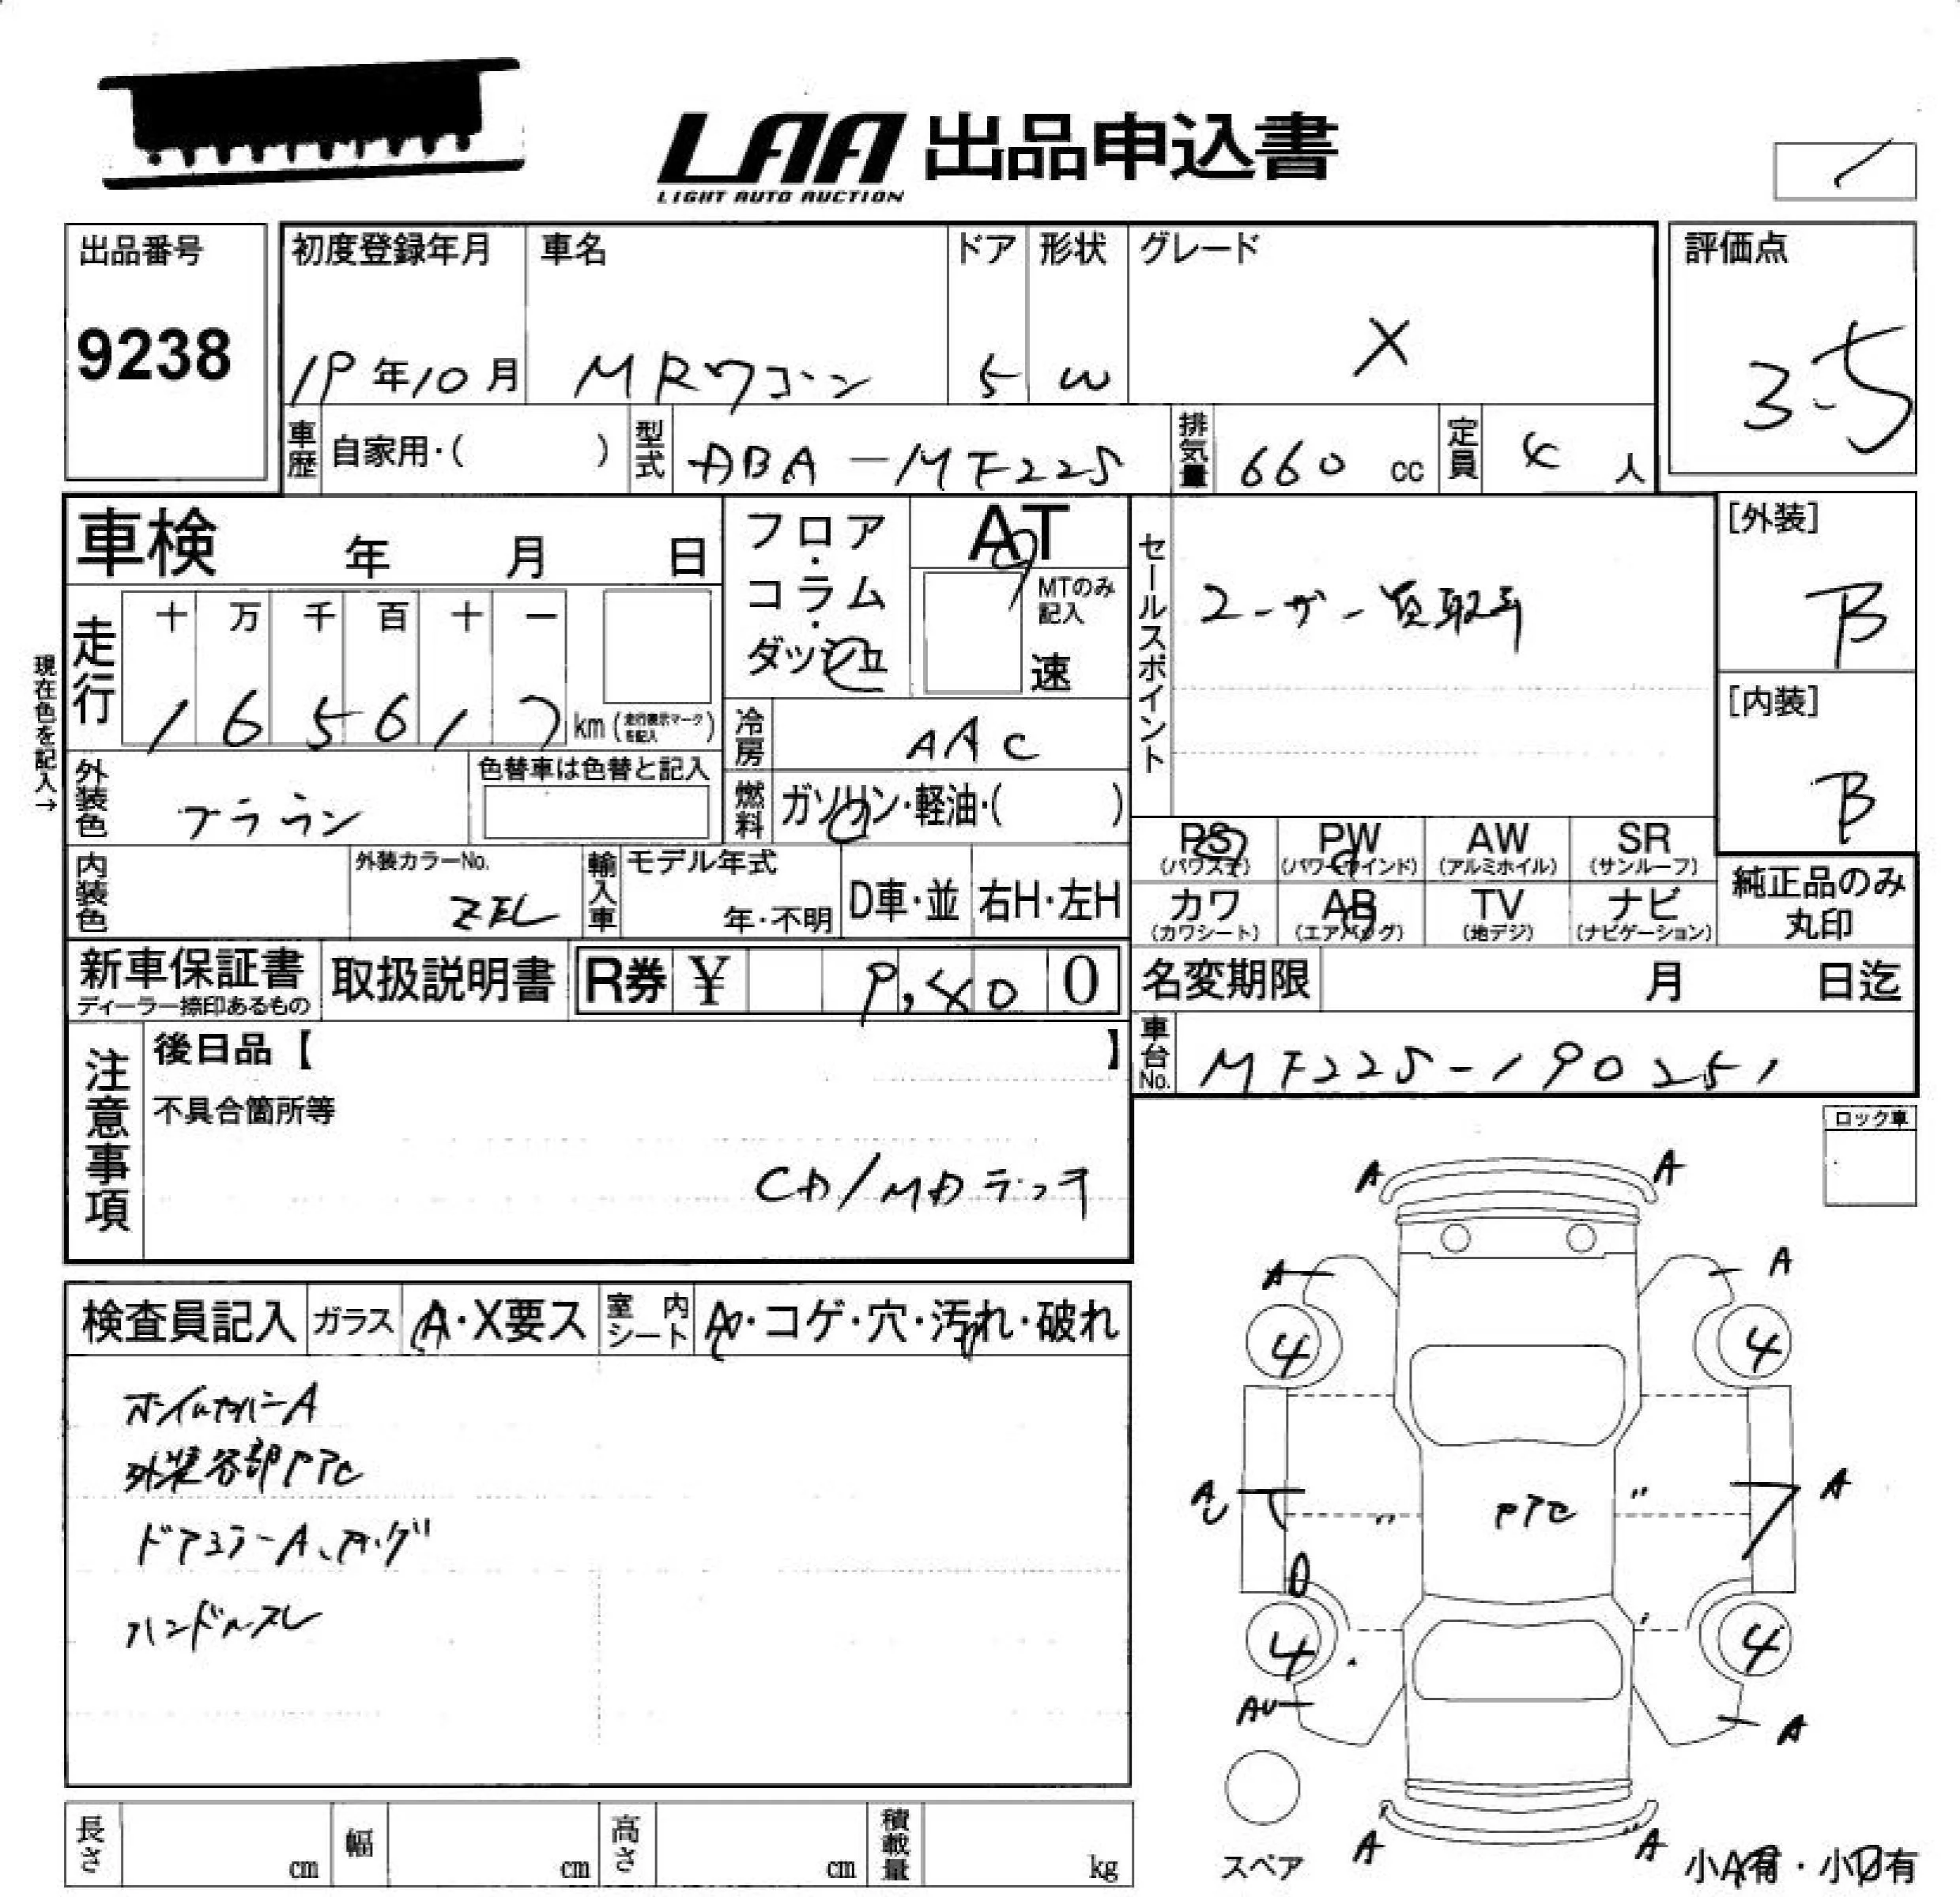 LAA 出品申込書
LIGHT AUTO AUCTION
出品番号
9238
初度登録年月
19年10月
車名
MRワゴン
ドア
5
形状
W
グレード
X
評価点
3.5
車歴
自家用・( )
型式
ABA-MF22S
排気量
660 cc
定員
4 人
車検 年 月 日
フロア・コラム・ダッシュ
AT
MTのみ記入
速
セールスポイント
ユーザー買取車
[外装]
B
[内装]
B
現在色を記入→
走行
十 万 千 百 十 一
1 6 5 6 1 7 km (走行表示マークを記入)
冷房
AAC
外装色
色替車は色替と記入
燃料
ガソリン・軽油・( )
PS (パワステ)
PW (パワーウインド)
AW (アルミホイル)
SR (サンルーフ)
カワ (カワシート)
AB (エアバッグ)
TV (地デジ)
ナビ (ナビゲーション)
純正品のみ丸印
内装色
外装カラーNo.
ZEL
輸入車
モデル年式
年・不明
D車・並
右H・左H
新車保証書
ディーラー捺印あるもの
取扱説明書
R券 ¥ 9,400
名変期限 月 日迄
車台No.
MF22S-190251
注意事項
後日品【 】
不具合箇所等
CD/MDデッキ
ロック車
検査員記入
ガラス
A・X要ス
室内シート
A・コゲ・穴・汚れ・破れ
ホイルカバーA
外装各部PTC
ドアミラーA、
ハンドルスレ
A A
A A
4 4
A
U
A
〃 PTC 〃
4 4
AU A
A A
スペア
小A有・小U有
長さ cm
幅 cm
高さ cm
積載量 kg